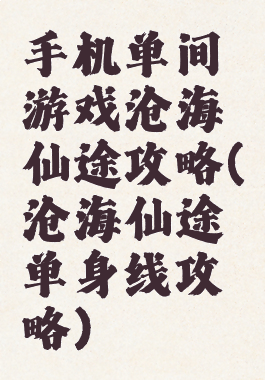 手机单间
游戏沧海
仙途攻略(
沧海仙途
单身线攻
略)